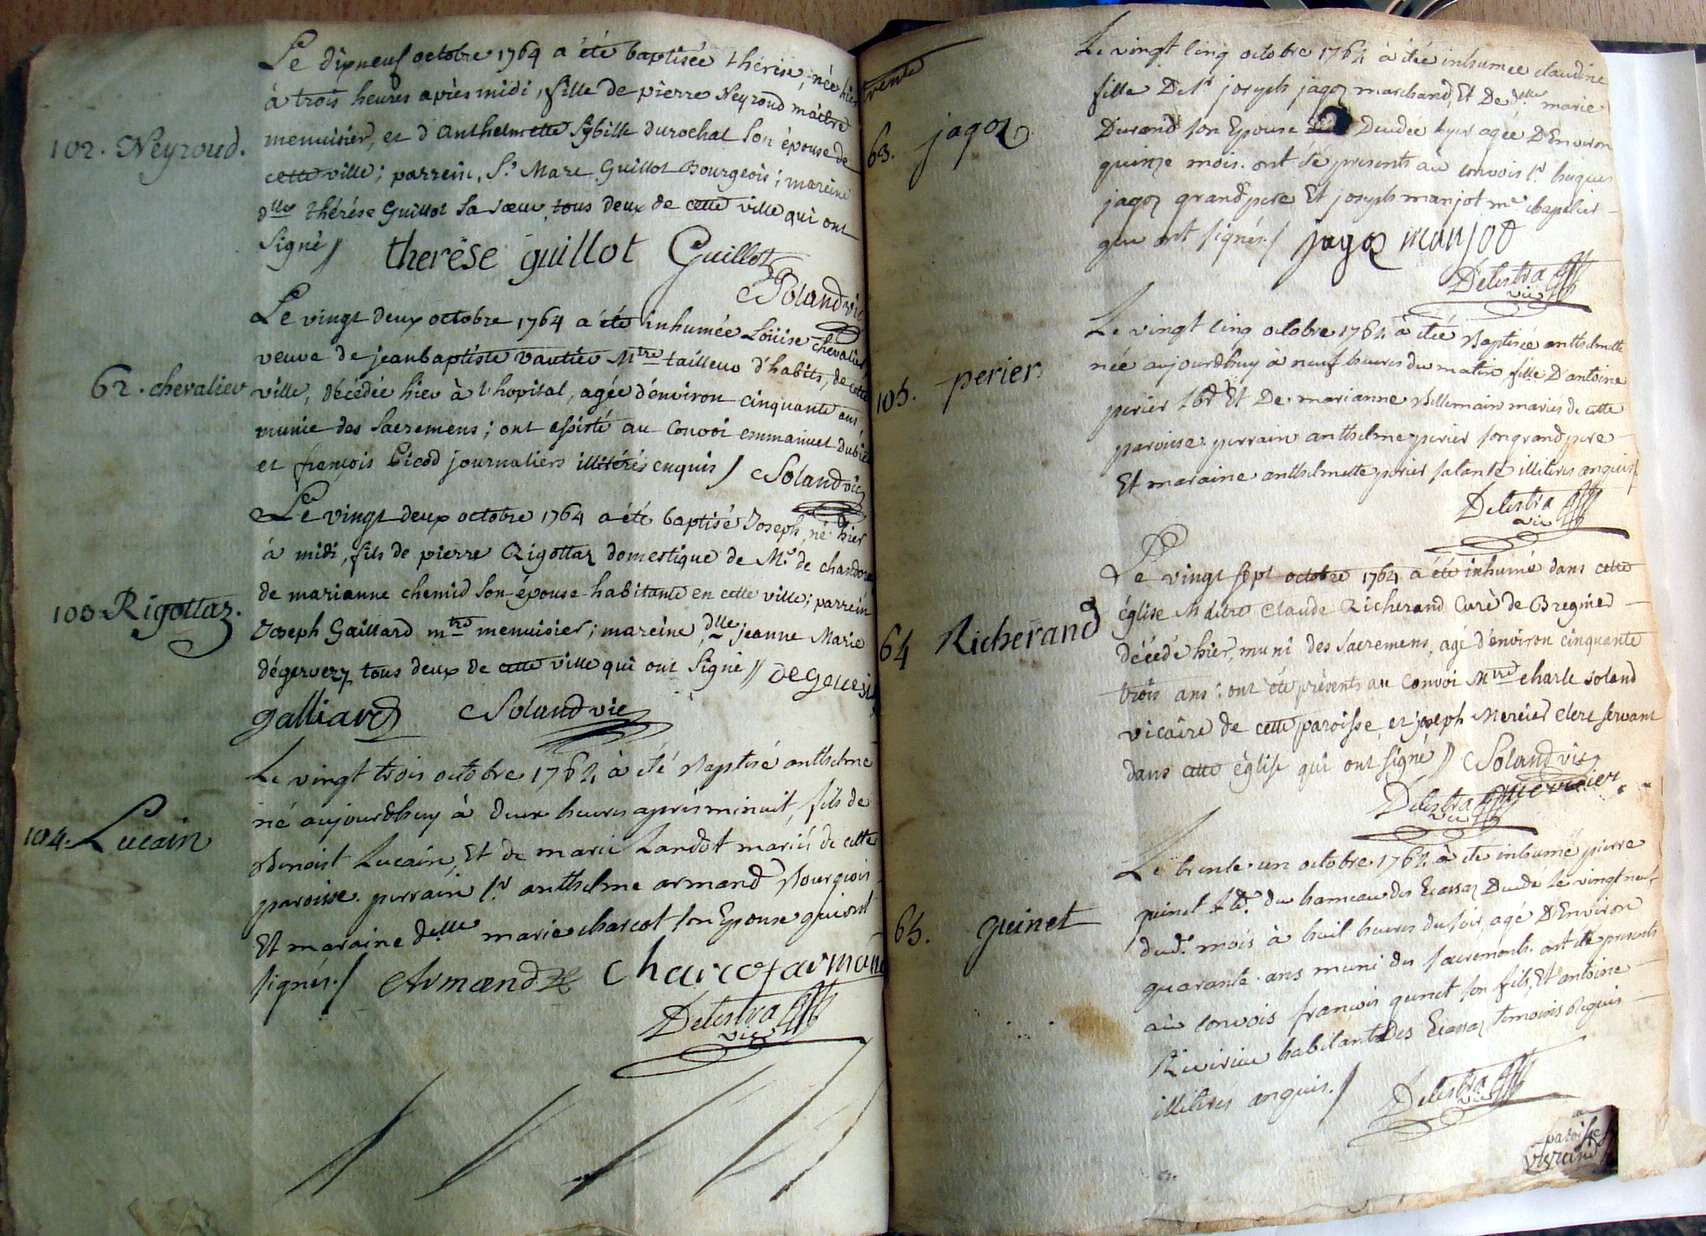 Le dixneuf octobre 1764 a été baptisée thérèse, née hier
à trois heures après midi, fille de pierre Neyroud maitre
102. Neyroud.
menuisier, et d'anthelmette Sybille durochat son épouse de
cette ville; parrein, Sr. Marc Guillot Bourgeois; mareine
dlle thérése Guillot sa sœur, tous deux de cette ville qui ont
signé //
therèse guillot Guillot
Soland vic
Le vingt deux octobre 1764 a été inhumée Loüise chevalier
veuve de jean baptiste vautier Mtre tailleur d'habits, de cette
62. chevalier
ville, décédée hier à l'hopital, agée d'environ cinquante ans,
munie des sacremens; ont assisté au convoi emmanuel dubie
et françois Picod journaliers illitérés enquis / Soland vic
Le vingt deux octobre 1764 a été baptisé Joseph, né hier
à midi, fils de pierre Rigottaz domestique de Mr. de chandore
de marianne chemid son épouse habitante en cette ville; parrein
103 Rigottaz.
Joseph Gaillard mtre menuisier; mareine, dlle jeanne Marie
dégerverz tous deux de cette ville qui ont signé //
galliard Soland vic
Le vingt trois octobre 1764 à été Baptisé anthelme
né aujourdhuy à deux heures après minuit, fils de
104. Lucain
Benoist Lucain, Et de marie Landot mariés de cette
paroisse. parrain sr anthelme armand Bourgeois
Et maraine delle marie charcot son Epouse qui ont
signés. / Armand charcot armand
Delestra
vic
trente
Le vingt cinq octobre 1764 à étée inhumée claudine
fille De sr joseph jagoz marchand, Et De dlle marie
63. jagoz
Durand son Epouse Decedée hyer agée D'Environ
quinze mois. ont été presents au convois sr hugues
jagoz grand pere Et joseph manjot me chapelier
qui ont signés. / jagoz manjot
Delestra
vic
Le vingt cinq octobre 1764 à étée Baptisée anthelmette
née aujourdhuy à neuf heures du matin fille D'antoine
105. perier.
perier Lbr. Et De marianne Billemain mariés de cette
paroisse. parrain anthelme perier son grand pere
Et maraine anthelmette perier sa tante illiteres anquis /
Delestra
vic
Le vingt sept octobre 1764 a été inhumé dans cette
église Maitre Claude Richerand Curé de Bregnier
64 Richerand
décédé hier, muni des sacremens, agé d'environ cinquante
trois ans: ont été présents au convoi Mtre charle soland
vicaire de cette paroisse, et joseph Mercier clerc servant
dans cette église qui ont signé // Soland vic
mercier
Delestra
vic
Le trente un octobre 1764 à été inhumé pierre
guinet Lbr. du hameau des Ecassaz Decede le vingt neuf
65. guinet
dud. mois à huit heures du soir agé D'Environ
quarante ans muni des sacrements. ont été presents
au convois francois guinet son fils, Et antoine
habitants Des Ecassaz temoins Requis
illiteres anquis. / Delestra
vic